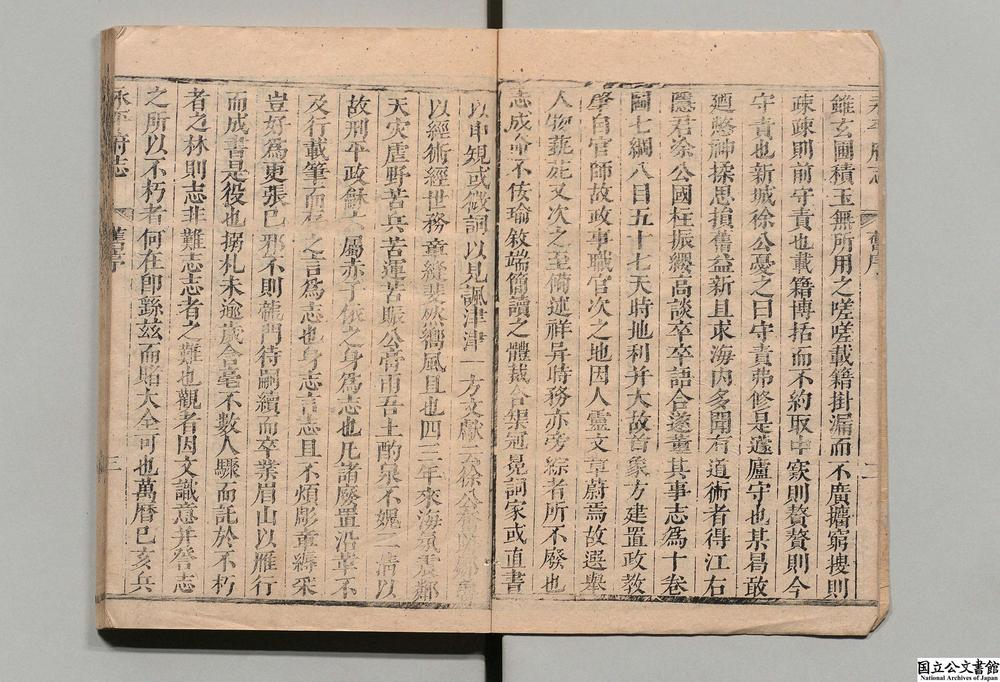 永平府志 舊序 二
雖玄圃積玉無所用之嗟嗟載籍掛漏而不廣擴窮搜則
疎疎則前守責也載籍博拓而不約取中窾則贅贅則今
守責也新城徐公憂之曰守責弗修是蘧廬守也某曷敢
廼憼神揉思損舊益新且求海内多聞有道術者得江右
隱君涂公國柱振綴高談卒卒語合遂董其事志為十卷
圖七綱八目五十七天時地利并大故首象方建置政教
肇自官師故政事職官次之地因人靈文章蔚焉故選舉
人物蓺苑又次之至脩述祥异時務亦旁綜者所不廢也
志成命不佞瑜敘端簡讀之體裁合榘冠冕詞家或直書
以申規或微詞以見諷津津一方文獻
以經術經世務章縫斐然嚮風且也四三年來海氛震鄰
天灾虐野苦兵苦運苦賑公膏雨吾土酌泉不媿二清以
故刑平政龢 屬亦了俍之身為志也凡諸廢置沿革不
及行載筆而 之言為志也身志言志且不煩彫章縟采
豈好為更張已邪不則龍門待嗣續而卒業眉山以雁行
而成書是役也搦札未逾歲含毫不數人驟而託於不朽
者之林則志非難志志者之難也觀者因文識意并登志
之所以不朽者何在卽繇兹而賭大全可也萬曆己亥兵
永平府志 舊序 三
国立公文書館
National Archives of Japan